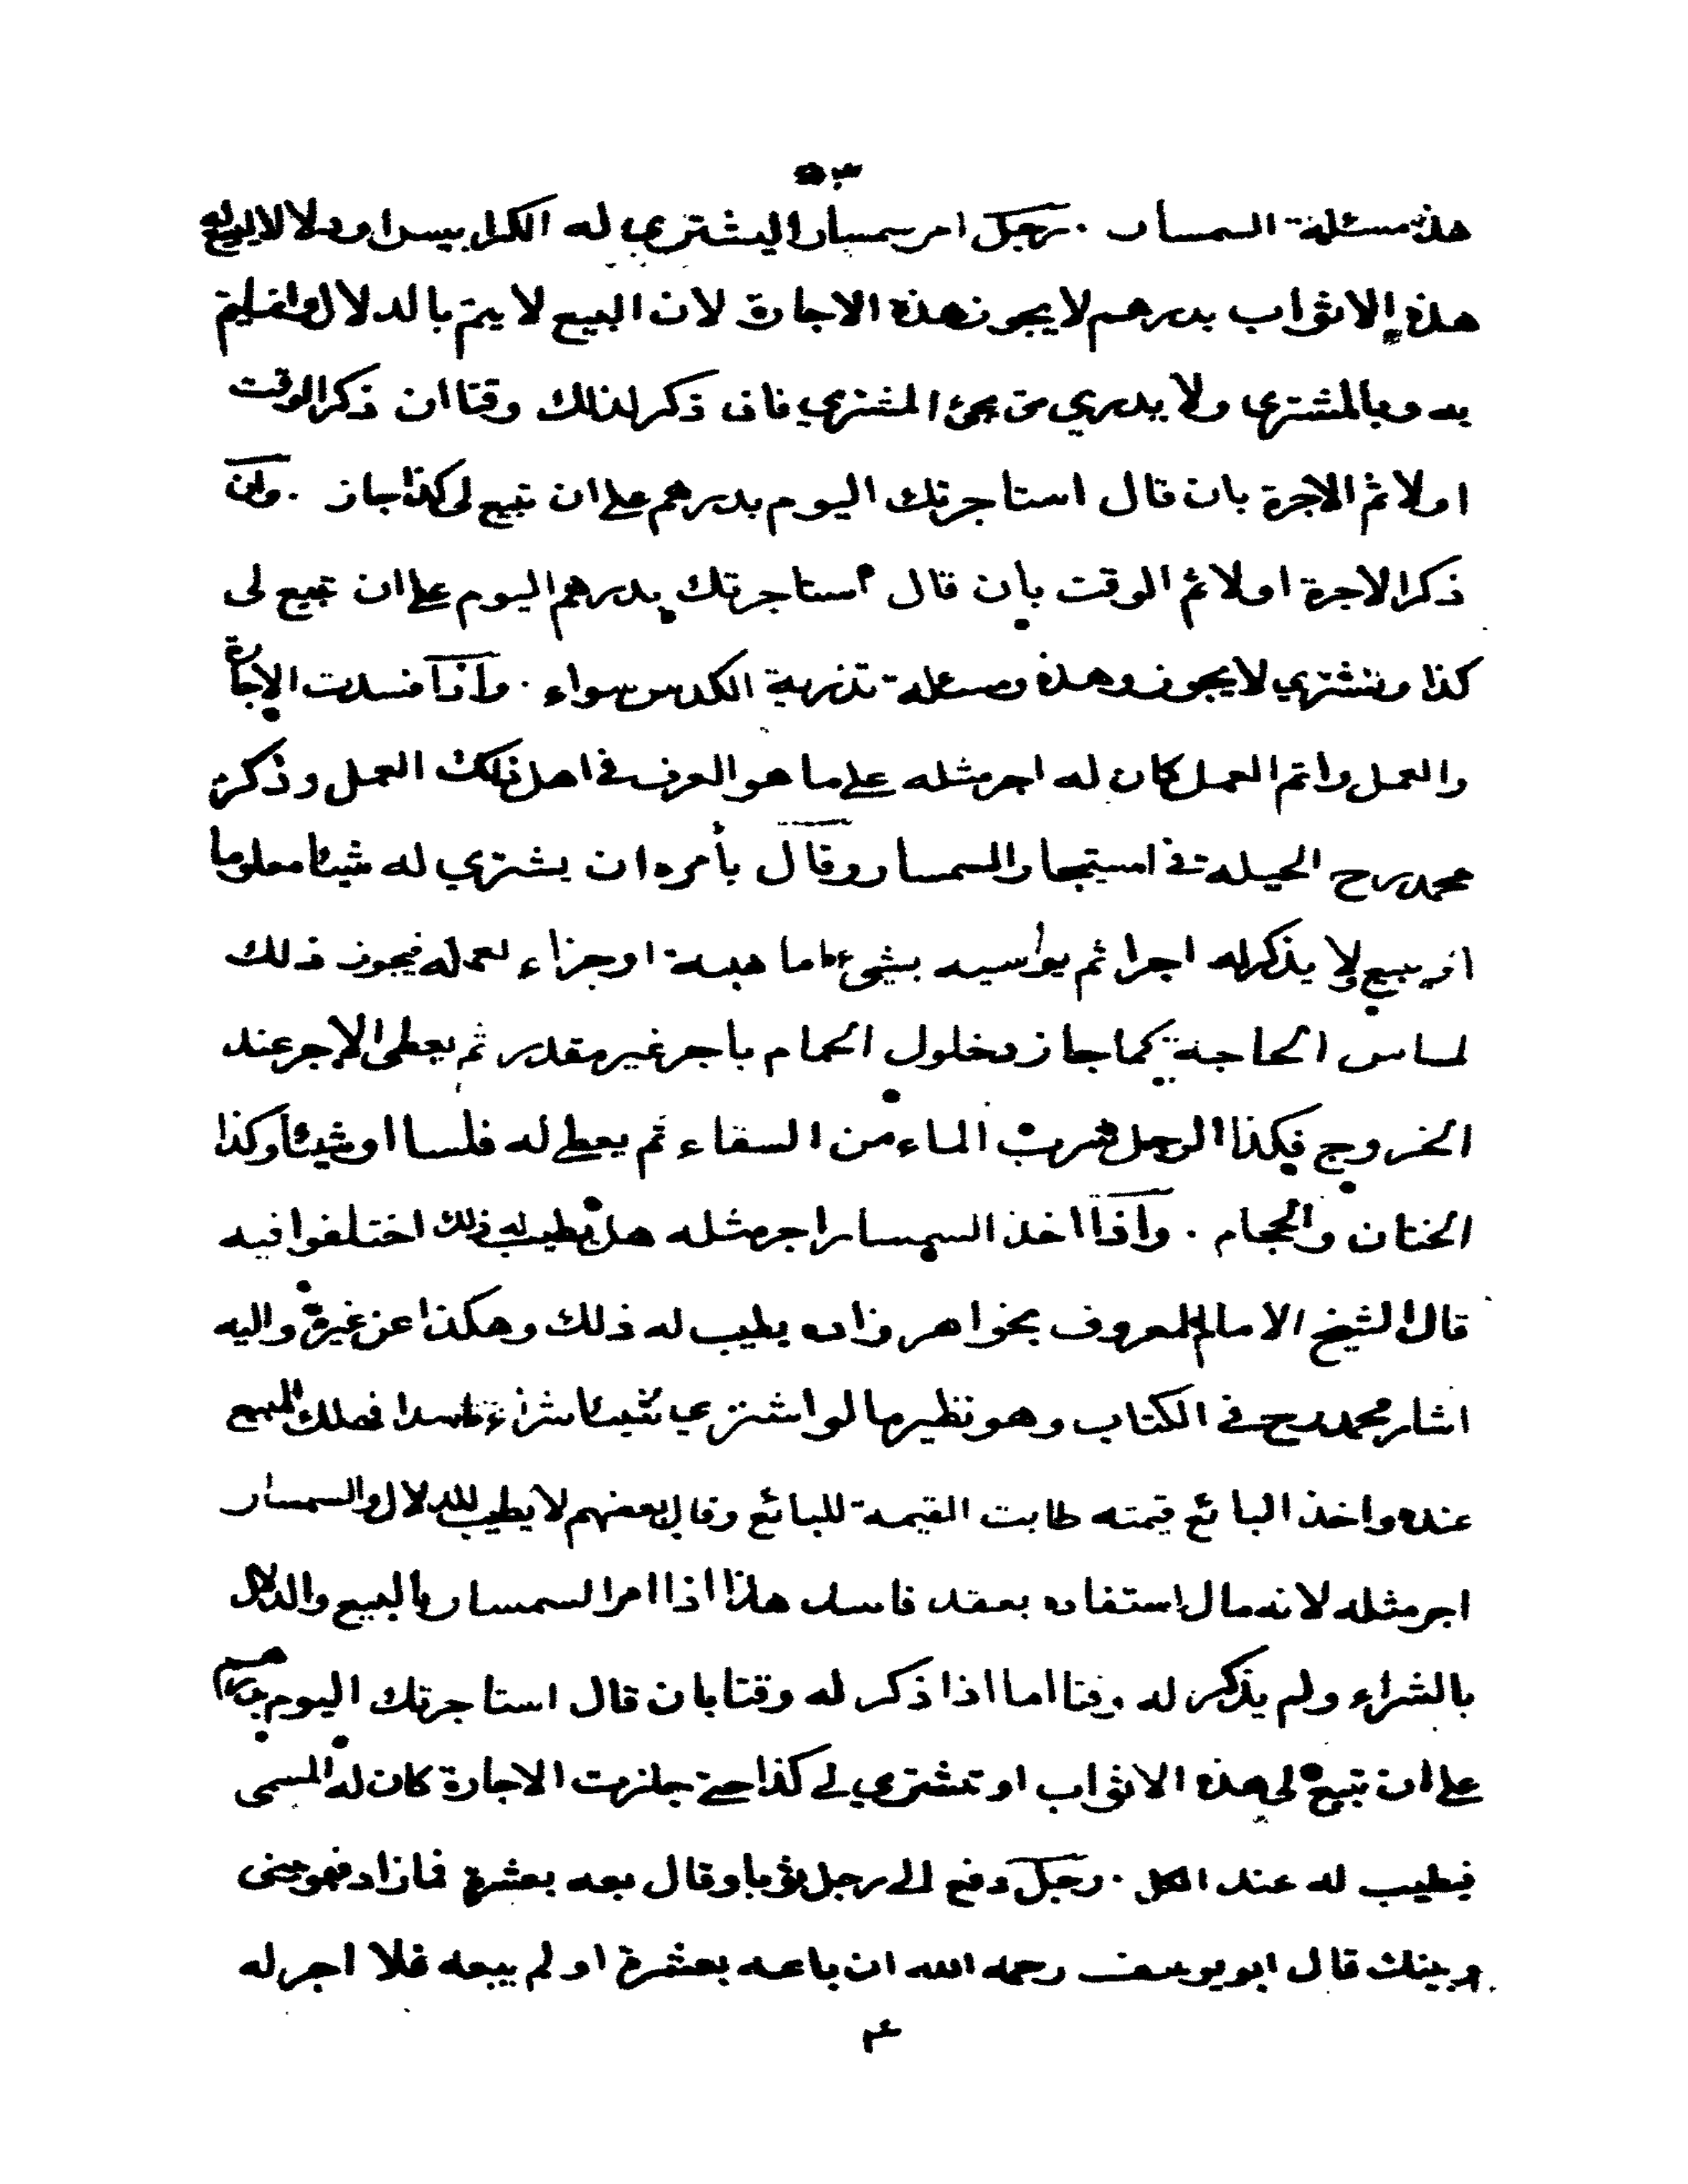 هذه مسئلة السمسار . رجل امر سمسارا ليشتري له الكرابيس او دلالا ليبيع
هذه الاثواب بدرهم لا يجوز هذه الاجارة لان البيع لا يتم بالدلال
به وبالمشتري ولا يدري متى يجئ المشتري فان ذكر لذلك وقتا ان ذكر الوقت
اولا ثم الاجرة بان قال استاجرتك اليوم بدرهم على ان تبيع لى كذا جاز . وان
ذكر الاجرة اولا ثم الوقت بان قال استاجرتك بدرهم اليوم على ان تبيع لى
كذا وتشتري لا يجوز وهذه ومسئلة تذرية الكدس سواء . واذا فسدت الاجارة
والعمل واتم العمل كان له اجر مثله على ما هو العرف في اهل ذلك العمل وذكر
محمد رح الحيلة في استيجار السمسار وقال يأمره ان يشتري له شيئا معلوما
او يبيع ولا يذكر له اجرا ثم يواسيه بشئ اما هبة او جزاء لعمله فيجوز ذلك
لمساس الحاجة كما جاز دخلول الحمام باجر غير مقدر ثم يعطى الاجر عند
الخروج فكذا الرجل شرب الماء من السقاء ثم يعطى له فلسا او شيئا وكذا
الختان والحجام . واذا اخذ السمسار اجر مثله هل يطيب له ذلك اختلفوا فيه
قال الشيخ الامام المعروف بخواهر زاده يطيب له ذلك وهكذا عن غيره واليه
اشار محمد رح في الكتاب وهو نظير ما لو اشتري شيئا شراء فاسدا فهلك المبيع
عنده واخذ البائع قيمته طابت القيمة للبائع وقال بعضهم لا يطيب للدلال والسمسار
اجر مثله لانه مال استفاده بعقد فاسد هذا اذا امر السمسار بالبيع والدلال
بالشراء ولم يذكر له وقتا اما اذا ذكر له وقتا بان قال استاجرتك اليوم بدرهم
على ان تبيع لى هذه الاثواب او تشتري لى كذا حتى جازت الاجارة كان له المسمى
فيطيب له عند الكل . رجل دفع الى رجل ثوبا وقال بعه بعشرة فما زاد فهو بينى
وبينك قال ابو يوسف رحمه الله ان باعه بعشرة او لم يبعه فلا اجر له